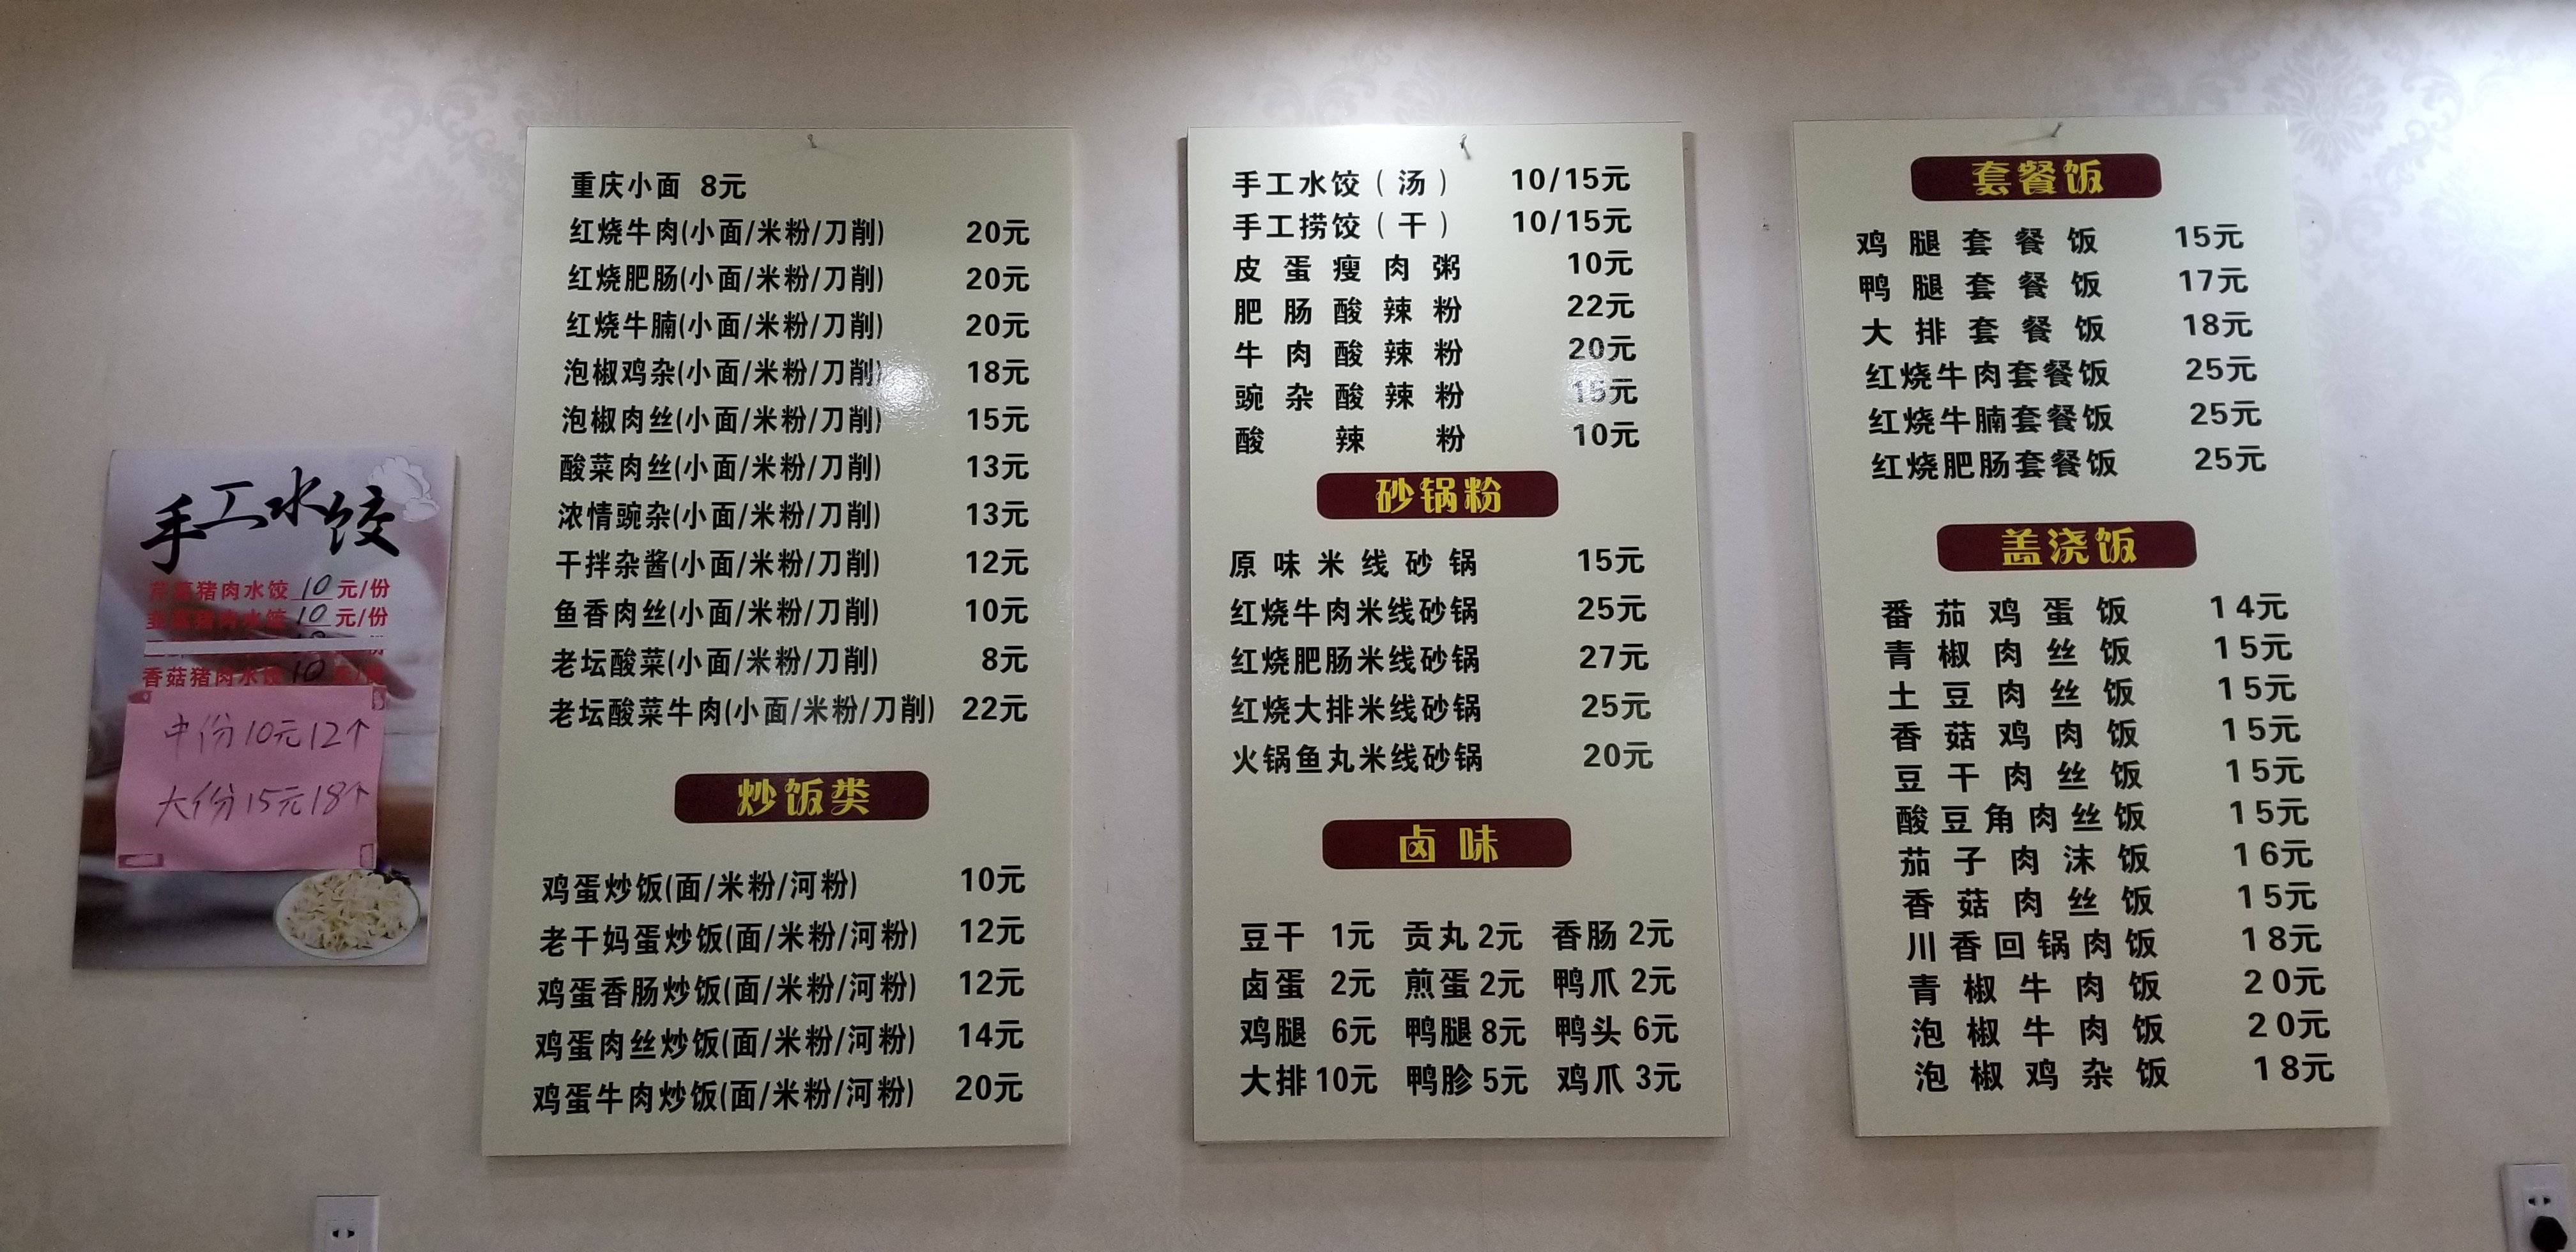 手工水饺
芹菜猪肉水饺 10 元/份
韭菜猪肉水饺 10 元/份
香菇猪肉水饺 10 元/份
中份10元12个
大份15元18个
重庆小面 8元
红烧牛肉(小面/米粉/刀削) 20元
红烧肥肠(小面/米粉/刀削) 20元
红烧牛腩(小面/米粉/刀削) 20元
泡椒鸡杂(小面/米粉/刀削) 18元
泡椒肉丝(小面/米粉/刀削) 15元
酸菜肉丝(小面/米粉/刀削) 13元
浓情豌杂(小面/米粉/刀削) 13元
干拌杂酱(小面/米粉/刀削) 12元
鱼香肉丝(小面/米粉/刀削) 10元
老坛酸菜(小面/米粉/刀削) 8元
老坛酸菜牛肉(小面/米粉/刀削) 22元
炒饭类
鸡蛋炒饭(面/米粉/河粉) 10元
老干妈蛋炒饭(面/米粉/河粉) 12元
鸡蛋香肠炒饭(面/米粉/河粉) 12元
鸡蛋肉丝炒饭(面/米粉/河粉) 14元
鸡蛋牛肉炒饭(面/米粉/河粉) 20元
手工水饺（汤） 10/15元
手工捞饺（干） 10/15元
皮蛋瘦肉粥 10元
肥肠酸辣粉 22元
牛肉酸辣粉 20元
豌杂酸辣粉 15元
酸辣粉 10元
砂锅粉
原味米线砂锅 15元
红烧牛肉米线砂锅 25元
红烧肥肠米线砂锅 27元
红烧大排米线砂锅 25元
火锅鱼丸米线砂锅 20元
卤味
豆干 1元 贡丸 2元 香肠 2元
卤蛋 2元 煎蛋 2元 鸭爪 2元
鸡腿 6元 鸭腿 8元 鸭头 6元
大排 10元 鸭胗 5元 鸡爪 3元
套餐饭
鸡腿套餐饭 15元
鸭腿套餐饭 17元
大排套餐饭 18元
红烧牛肉套餐饭 25元
红烧牛腩套餐饭 25元
红烧肥肠套餐饭 25元
盖浇饭
番茄鸡蛋饭 14元
青椒肉丝饭 15元
土豆肉丝饭 15元
香菇鸡肉饭 15元
豆干肉丝饭 15元
酸豆角肉丝饭 15元
茄子肉沫饭 16元
香菇肉丝饭 15元
川香回锅肉饭 18元
青椒牛肉饭 20元
泡椒牛肉饭 20元
泡椒鸡杂饭 18元